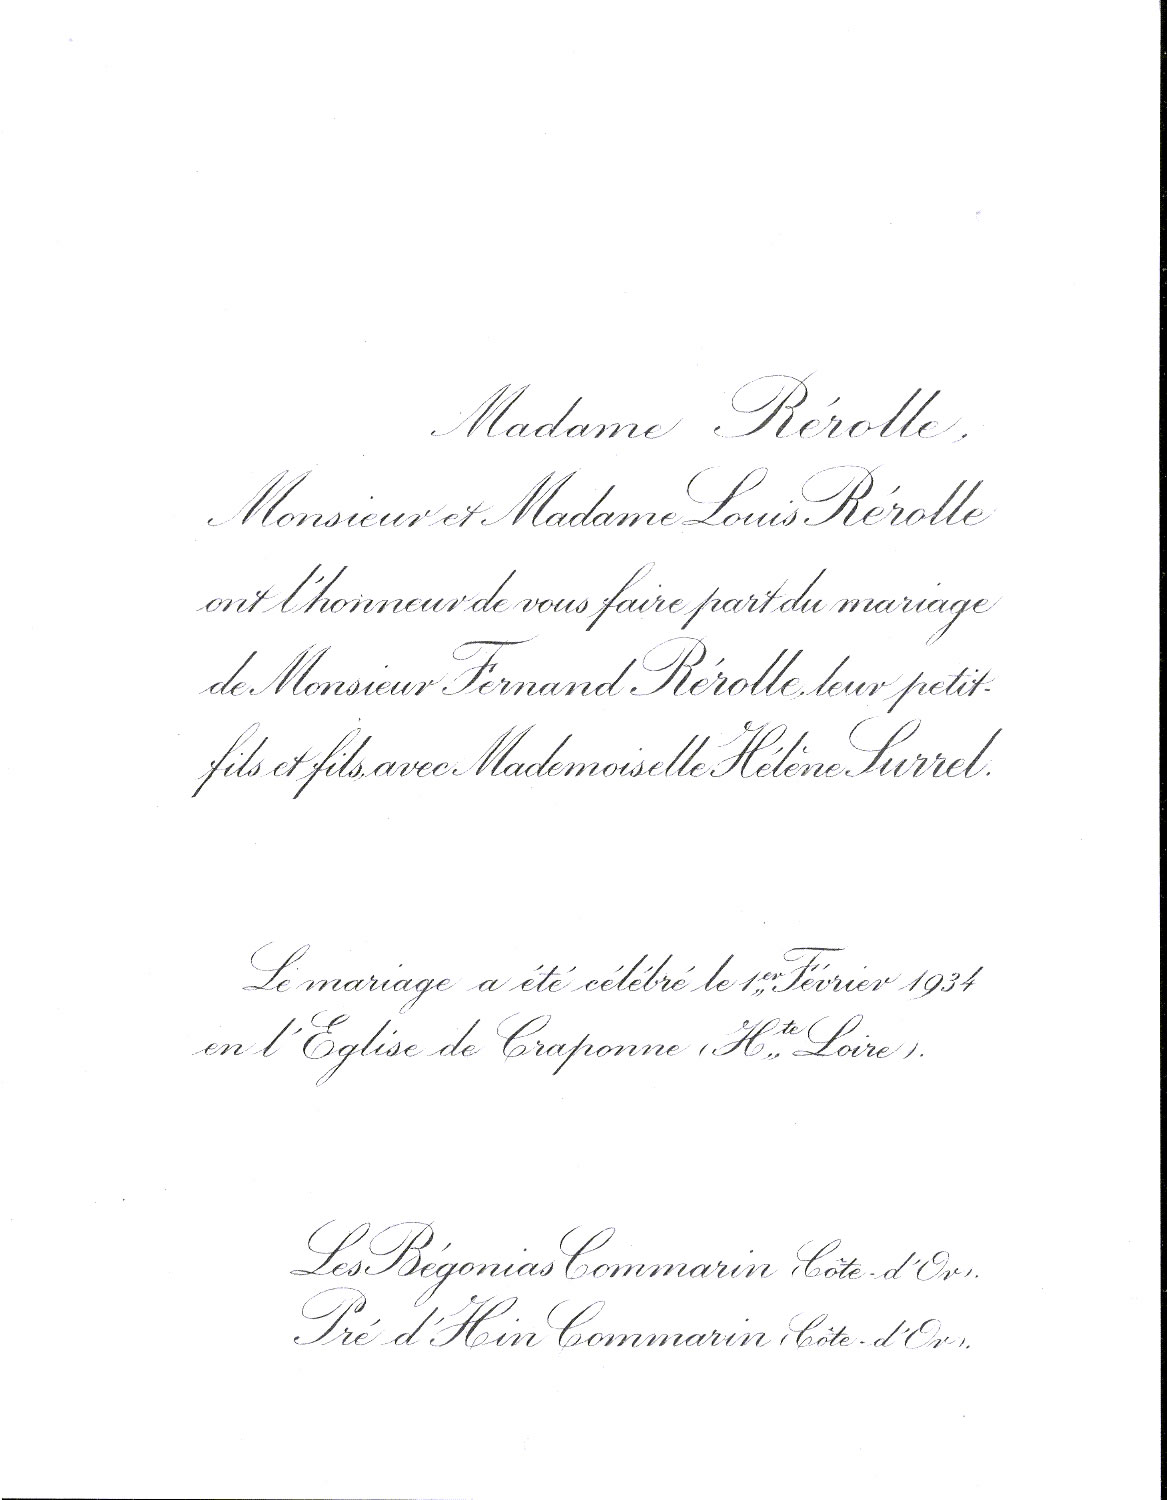 Madame Rérolle,
Monsieur et Madame Louis Rérolle
ont l'honneur de vous faire part du mariage
de Monsieur Fernand Rérolle, leur petit-
fils et fils, avec Mademoiselle Hélène Surrel.
Le mariage a été célébré le 1er Février 1934
en l'Eglise de Craponne (Hte Loire).
Les Bégonias Commarin (Côte-d'Or).
Pré d'Hin Commarin (Côte-d'Or).